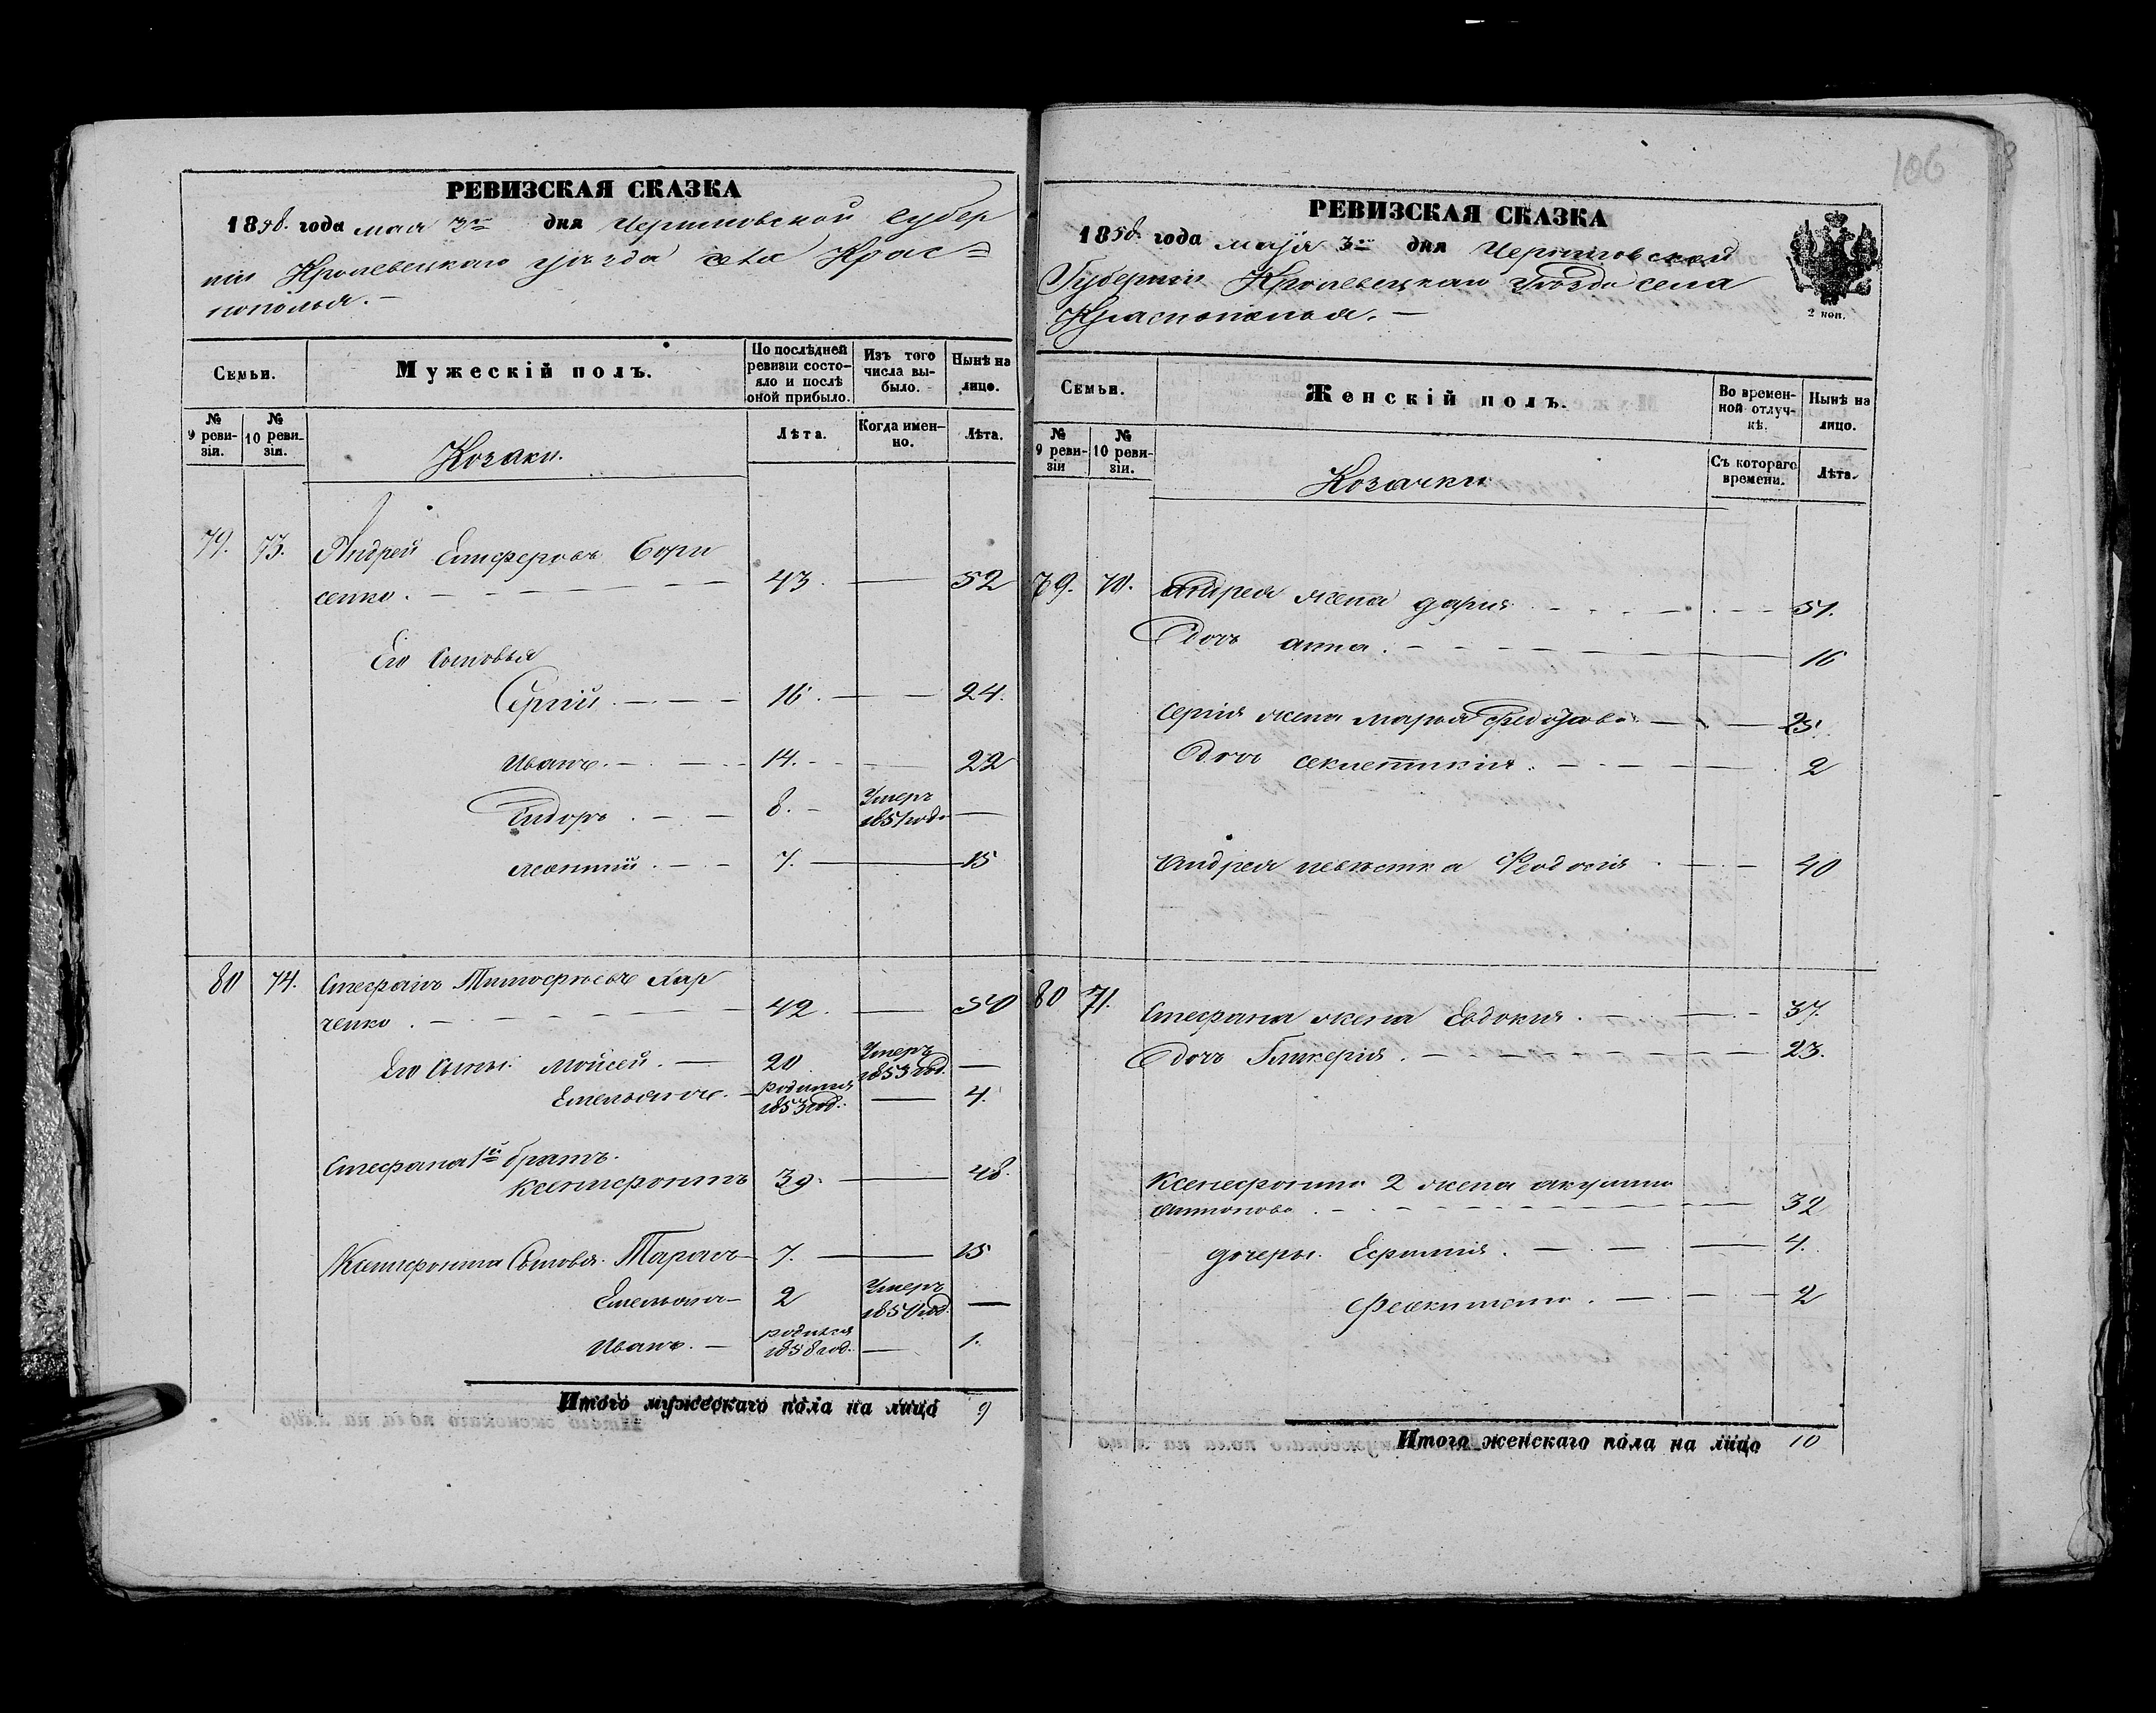 106
8
РЕВИЗСКАЯ СКАЗКА
1858. года мая 3го дня Черниговской Губер
ніи Кролевецкаго уѣзда села Крас=
нополья.-
Семьи.
Мужескій полъ.
По послѣдней ревизіи состояло и послѣ оной прибыло.
Изъ того числа выбыло.
Нынѣ на лицо.
№ 9 ревизіи.
№ 10 ревизіи.
Козаки.
Лѣта.
Когда именно.
Лѣта.
79. 73. Андрей Елиферовъ Бори
сенко. 43. 52
Его сыновья
Сергій. 16. 24.
Иванъ. 14. 22
8. Умеръ 1851 года
7. 15
80 74. Стефанъ Тимофѣевъ Хар
ченко. 42. 50
Его сыны. Мойсей. 20 Умеръ 1853 год.
Емельянъ. родился 1853 год. 4.
Стефана 1й братъ.
Ксенофонтъ 39. 48.
Ксенофонта сыновья. Тарасъ 7. 15
Емельянъ 2 Умеръ
Иванъ. родился 1858 год. 1.
Итого мужескаго пола на лицо 9
РЕВИЗСКАЯ СКАЗКА
1858. года маія 3го дня Черниговской
Губерніи Кролевецкаго Уѣзда села
Краснополья.-
2 коп.
Семьи.
Женскій полъ.
Во временной отлучкѣ.
Нынѣ на лицо.
№ 9 ревизіи
№ 10 ревизіи.
Козачки
Съ котораго времени.
Лѣта.
79. 70. Андрея жена дарія 51.
Дочь анна. 16
Сергія жена марья 25.
Дочь секлетикія. 2
Андрея невѣстка Феодосія 40
80 71. Стефана жена Евдокія. 37.
Дочь Гликерія. 23.
Ксенофонта 2 жена акулина
антонова. 32
дочеры. Ефимія. 4.
2
Итого женскаго пола на лицо 10